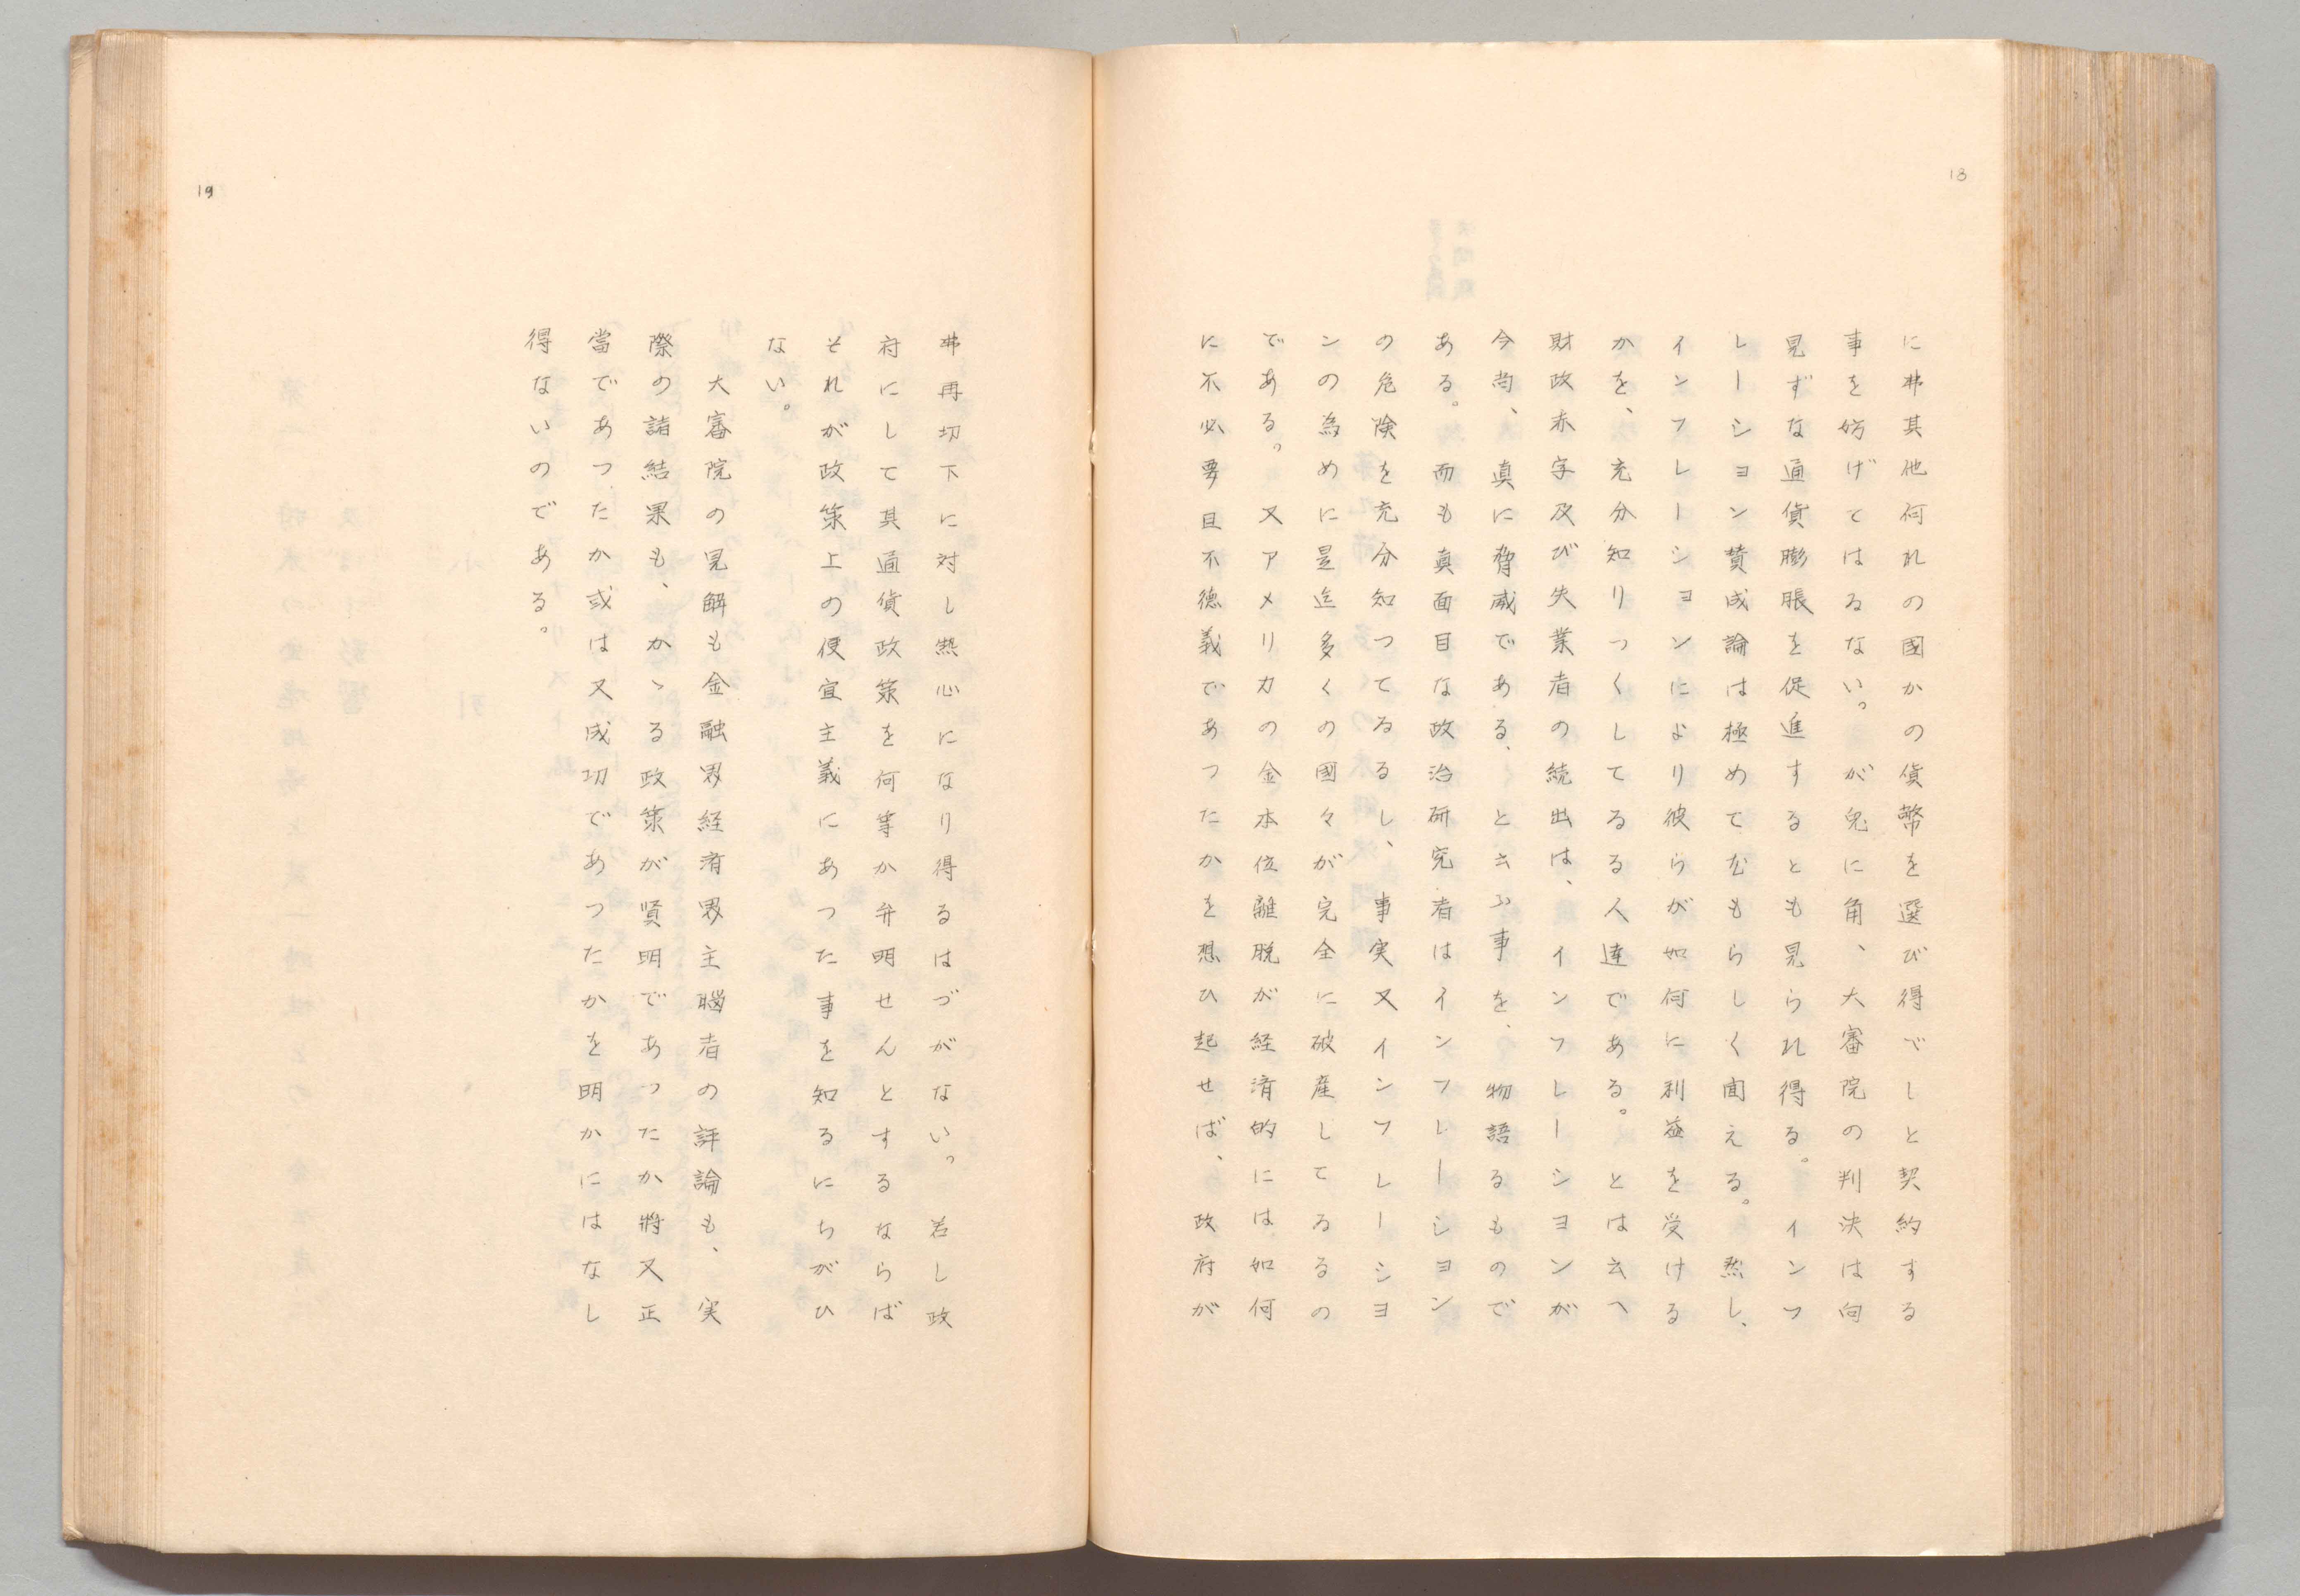 18
に弗其他何れの國かの貨幣を選び得べしと契約する
事を妨げてはゐない。が兎に角、大審院の判決は向
見ずな通貨膨脹を促進するとも見られ得る。インフ
レーション賛成論は極めて尤もらしく聞える。然し、
インフレーションにより彼らが如何に利益を受ける
かを、充分知りつくしてゐる人達である。とは云へ
財政赤字及び失業者の続出は、インフレーションが
今尚、真に脅威である、と云ふ事を、物語るもので
ある。而も真面目な政治研究者はインフレーション
の危険を充分知つてゐるし、事実又インフレーショ
ンの為めに是迄多くの國々が完全に破産してゐるの
である。又アメリカの金本位離脱が経済的には如何
に不必要且不徳義であつたかを想ひ起せば、政府が
19
弗再切下に対し熱心になり得るはづがない。若し政
府にして其通貨政策を何等か弁明せんとするならば
それが政策上の便宜主義にあつた事を知るにちがひ
ない。
大審院の見解も金融界経済界主脳者の評論も、実
際の諸結果も、かゝる政策が賢明であつたか将又正
當であつたか或は又成功であつたかを明かにはなし
得ないのである。